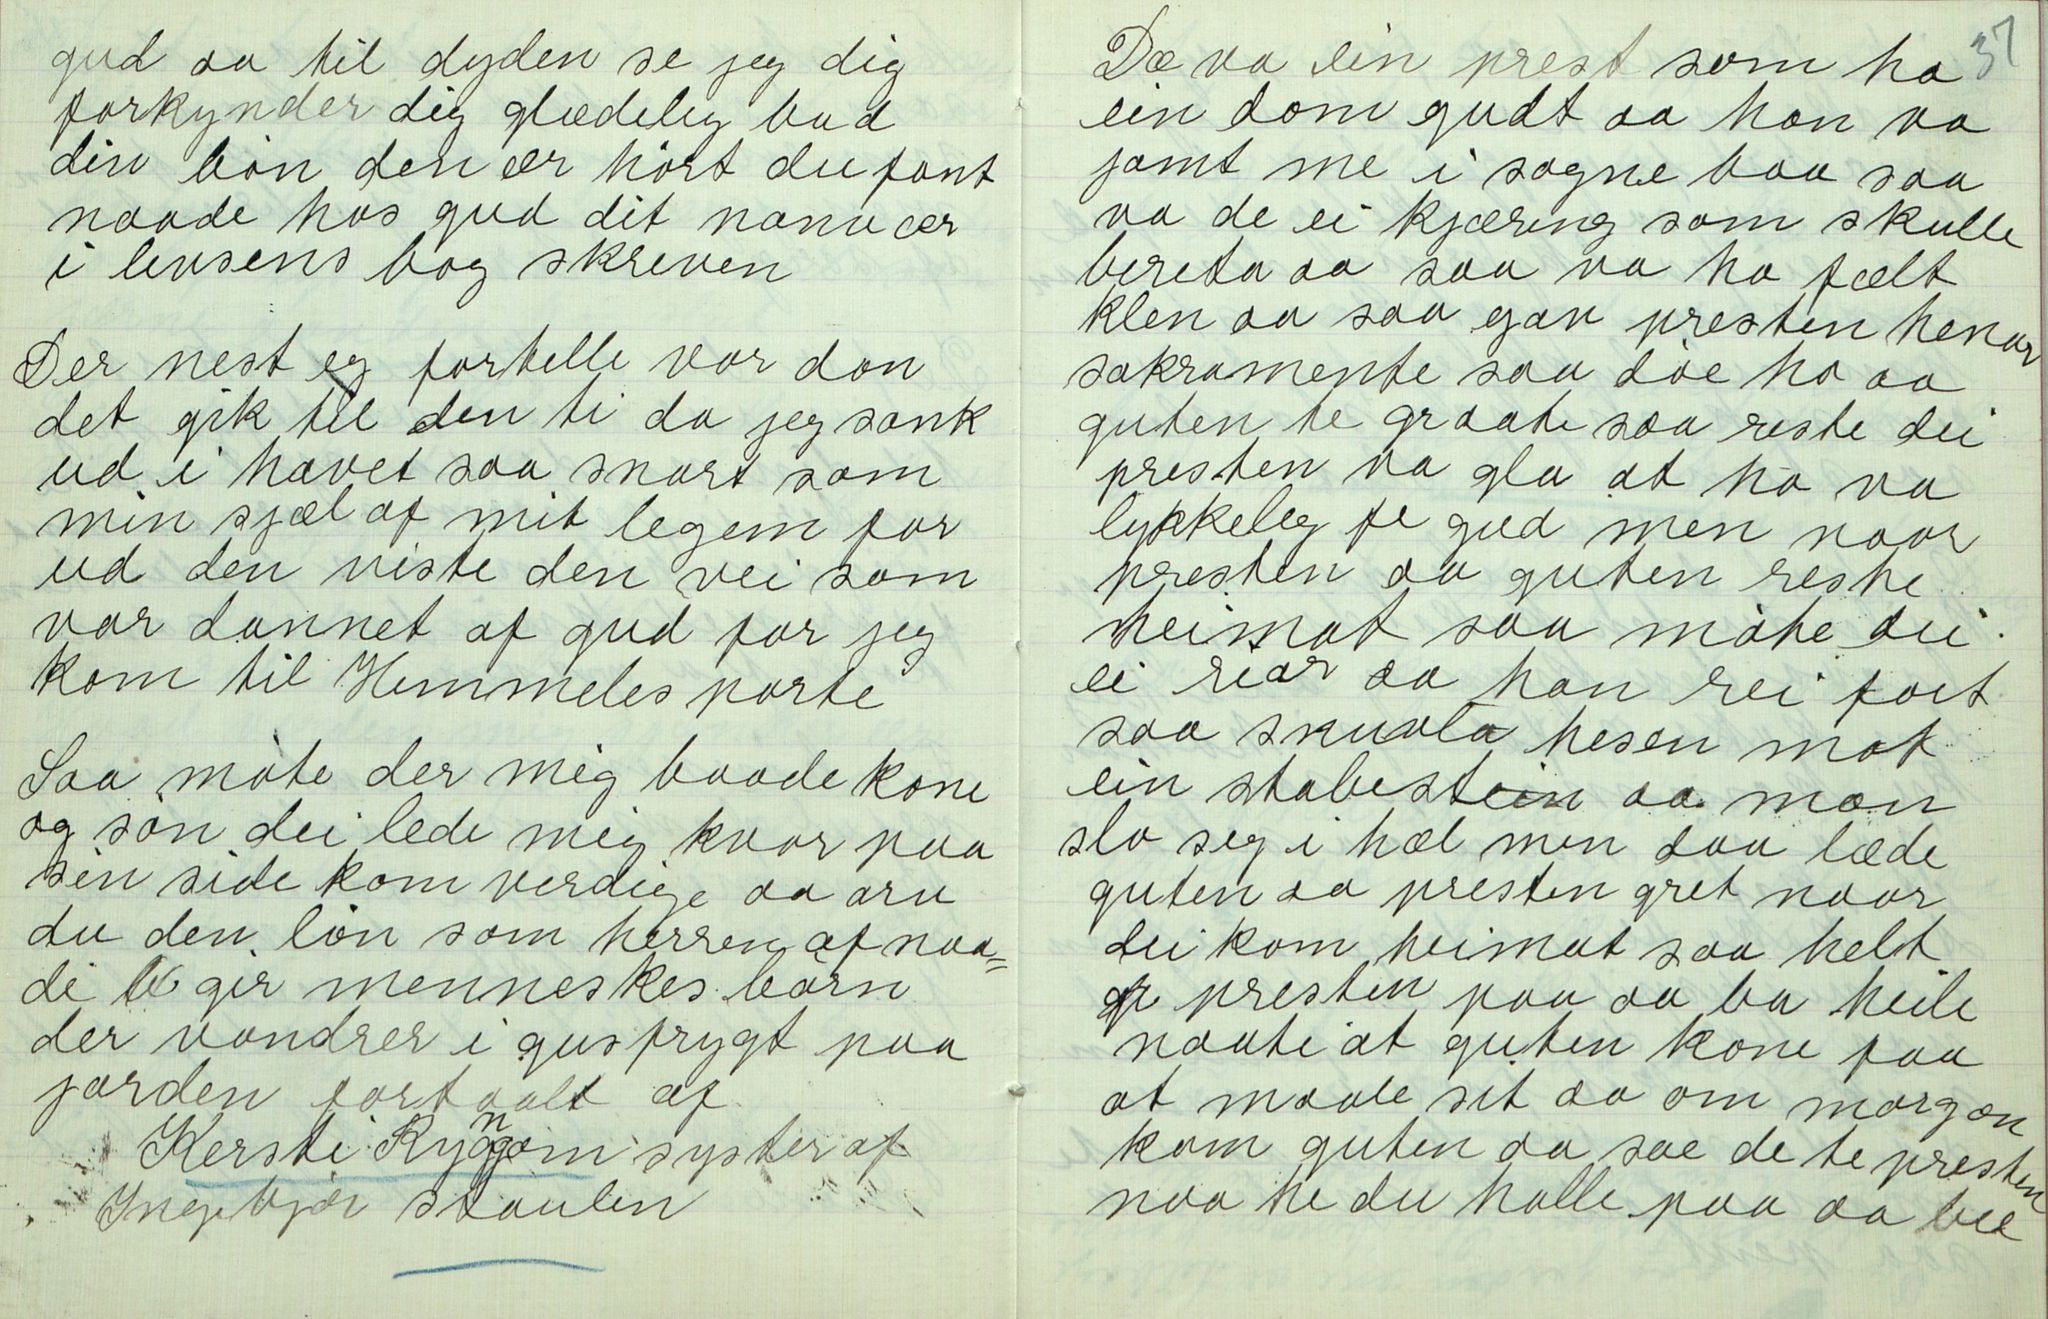 gud aa til dyden se jeg dig
forkynder dig glædeleg bud
din bön den er hört du fant
naade hos gud dit navn er
i levsens bog skreven
Der nest eg fortelle vor dan
det gik til den ti da jeg sank
ud i havet saa snart som
min sjæl af mit legem for
ud den viste den vei som
var dannet af gud for jeg
kom til Himmeles porte
Saa möte der mig baade kone
og sön dei lede mig kvar paa
sin side kom verdige aa arv
du den lön som herren af naa=
de gir menneskes börn
der vandrer i gusfrygt paa
jorden fortaalt af
Kersti Ryngom syster af
Ingebjör staulen
37
Dæ va ein prest som ha
ein dom gudt aa han va
jamt me i sogne baa saa
va de ei kjæring som skulle
bereta aa saa va ho fælt
klen aa saa gav presten henar
sakramente saa döe ho aa
guten te graate saa reste dei
presten va gla at ho va
lykkeleg fe gud men naar
presten aa guten reste
heimat saa möte dei
ei riar aa han rei fort
saa skvala hesen mot
ein stabestein aa man
slo seg i hæl men daa læde
guten aa presten gret naar
dei kom heimat saa helt
presten paa aa ba heile
naate at guten kone faa
at maale sit aa om morgon
kom guten aa sae de te presten
naa he du halle paa aa bee